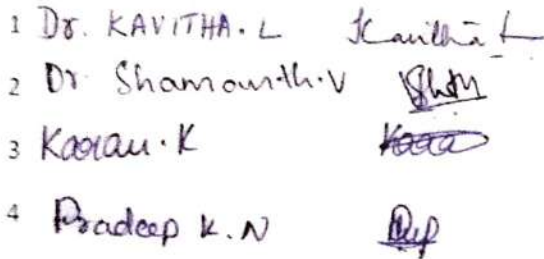 1 Dr. KAVITHA. L Kavitha L
2 Dr Shamanth. V
3 Kaoran. K
4 Pradeep K. N